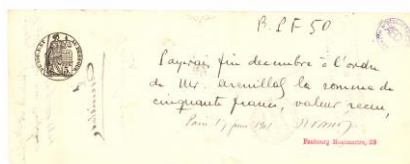 B.P.F 50
Payerai fin decembre à l'ordre
de Mr. la somme de
cinquante francs, valeur reçue,
Paris 17 juin 1901
Faubourg Montmartre, 23